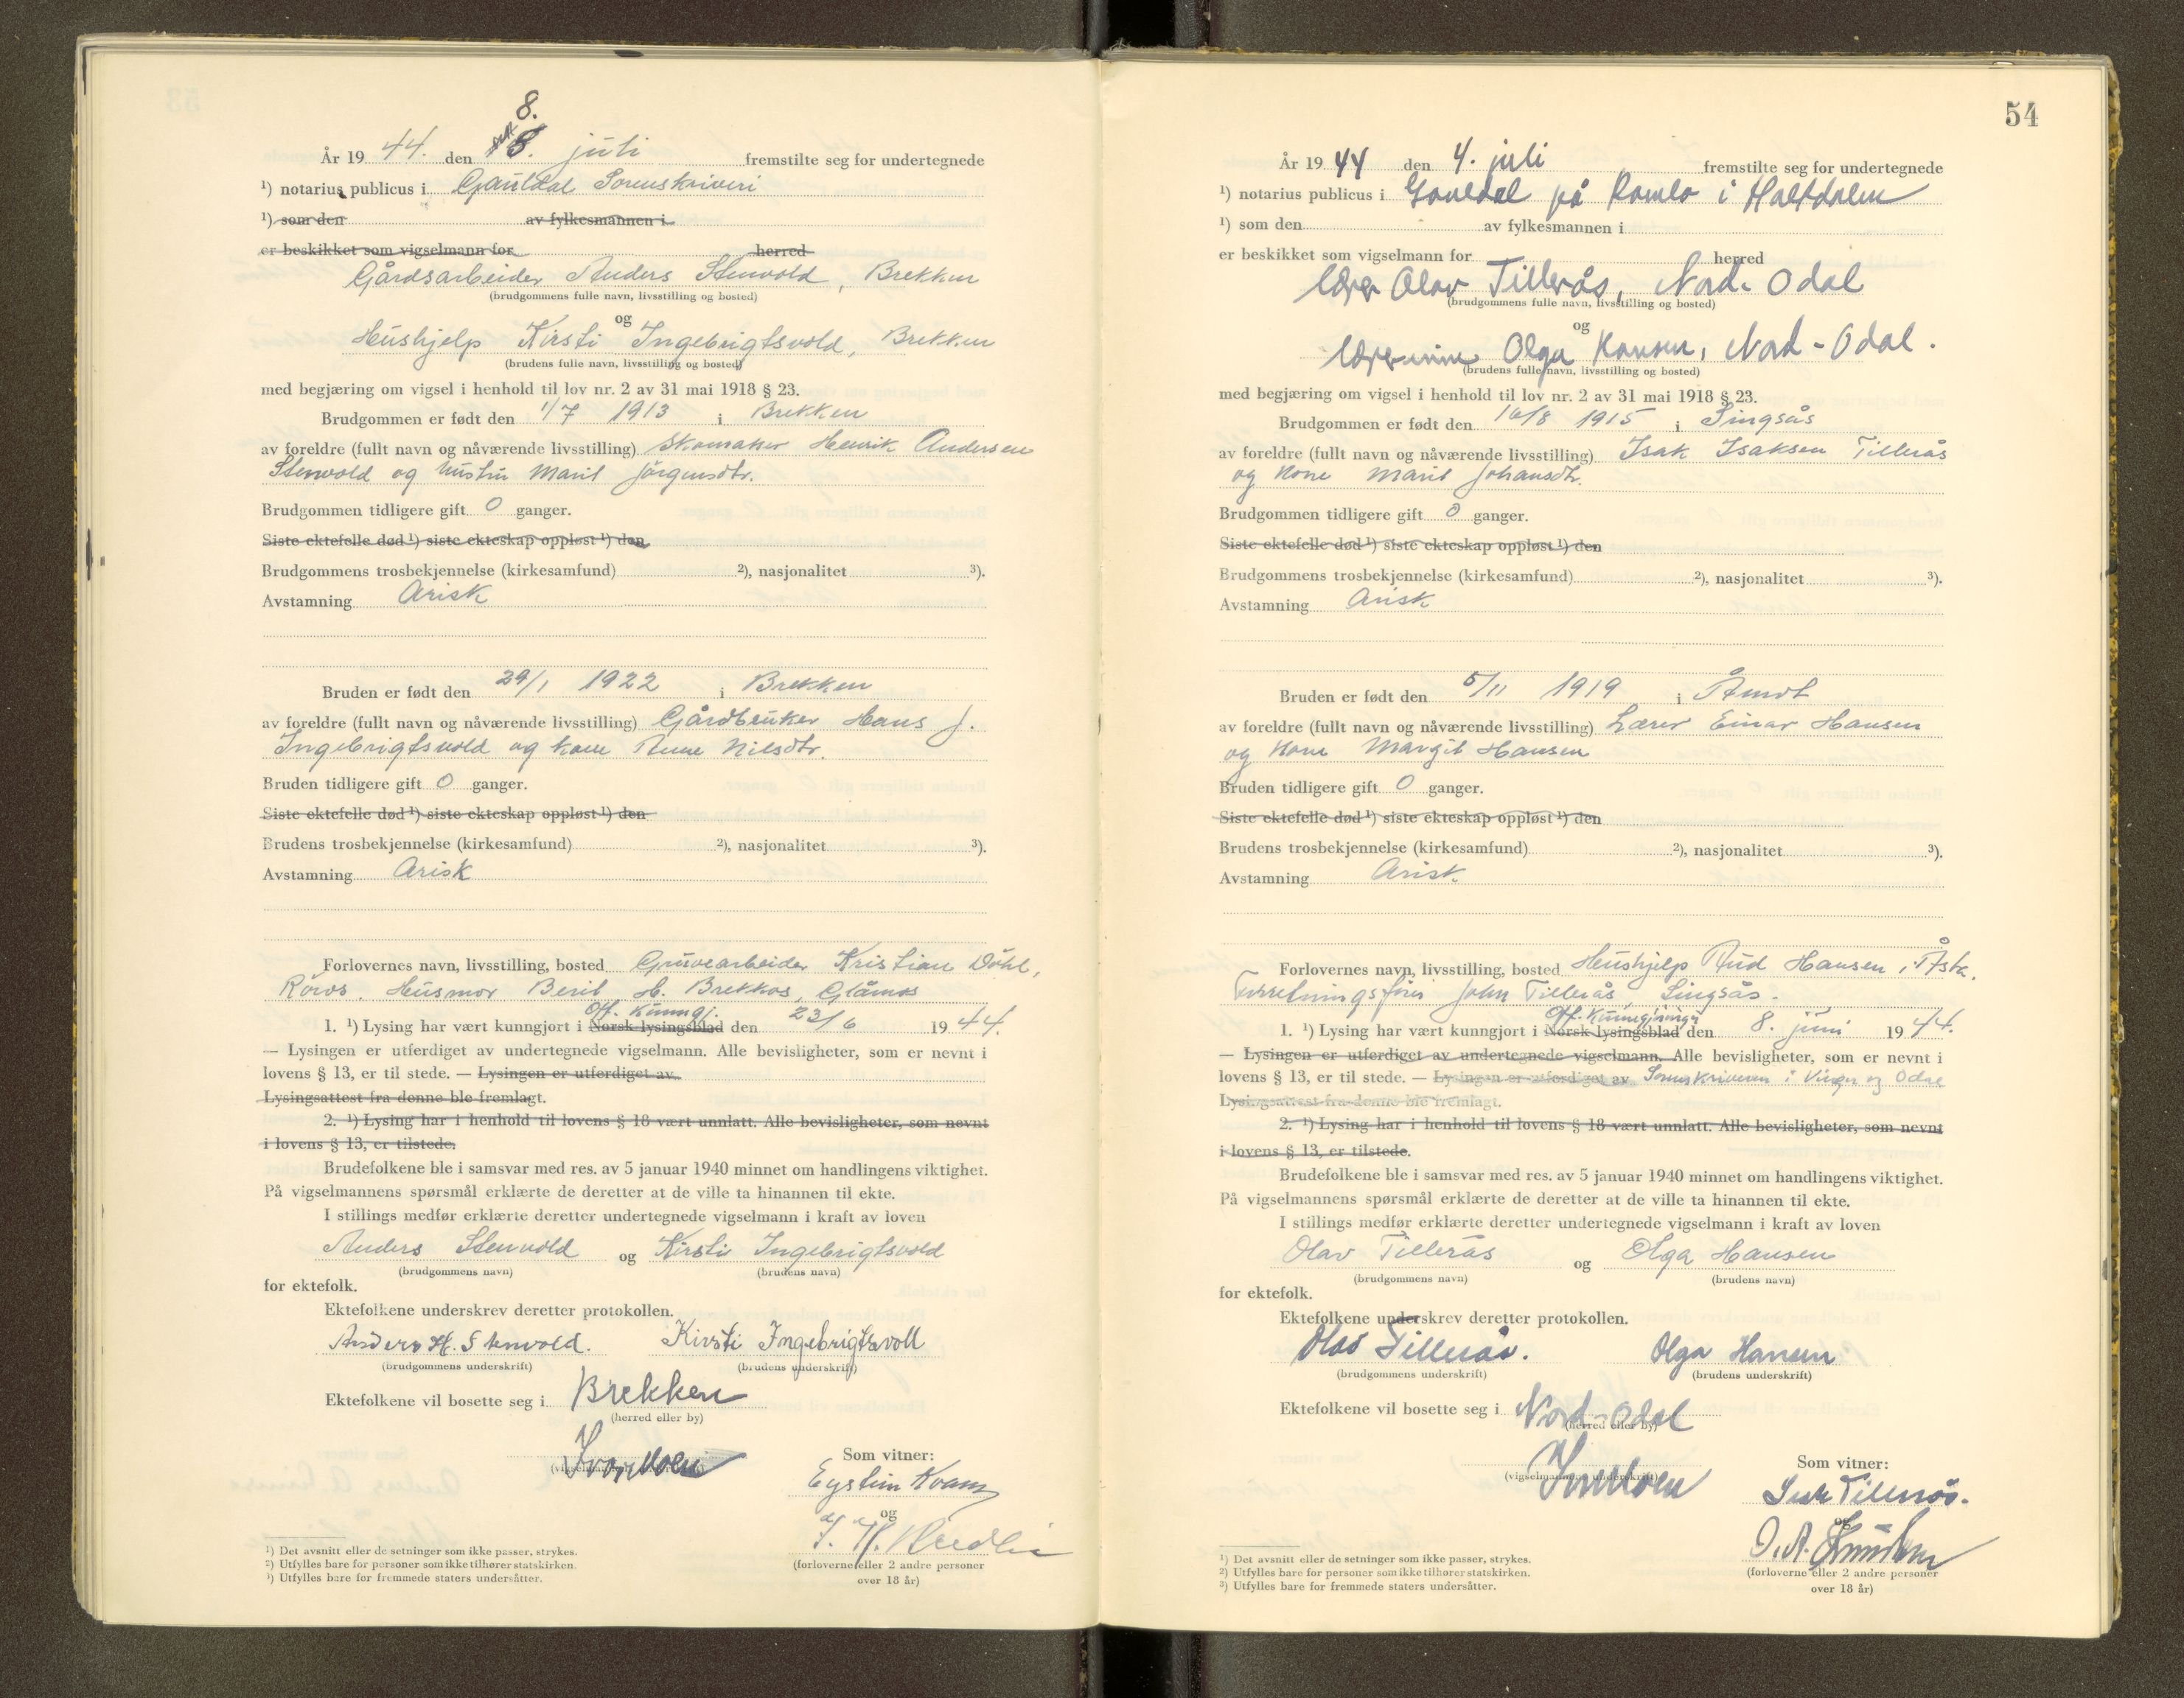 8.
År 1944. den 8. juli fremstilte seg for undertegnede
¹) notarius publicus i Gauldal Sorenskriveri
¹) som den av fylkesmannen i
er beskikket som vigselmann for herred
Gårdsarbeider Anders Stenvold, Brekken
(brudgommens fulle navn, livsstilling og bosted)
og
Hushjelp Kirsti Ingebrigtsvold, Brekken
(brudens fulle navn, livsstilling og bosted)
med begjæring om vigsel i henhold til lov nr. 2 av 31 mai 1918 § 23.
Brudgommen er født den 1/7 1913 i Brekken
av foreldre (fullt navn og nåværende livsstilling) Skomaker Henrik Andersen
Stenvold og hustru Marit Jörgensdtr.
Brudgommen tidligere gift 0 ganger.
Siste ektefelle død ¹) siste ekteskap oppløst ¹) den
Brudgommens trosbekjennelse (kirkesamfund) ²), nasjonalitet ³).
Avstamning Arisk
Bruden er født den 29/1 1922 i Brekken
av foreldre (fullt navn og nåværende livsstilling) Gårdbruker Hans J.
Ingebrigtsvold og kone Anne Nilsdtr.
Bruden tidligere gift 0 ganger.
Siste ektefelle død ¹) siste ekteskap oppløst ¹) den
Brudens trosbekjennelse (kirkesamfund) ²), nasjonalitet ³).
Avstamning Arisk
Forlovernes navn, livsstilling, bosted Gruvearbeider Kristian Döhl,
Röros. Husmor Beril H. Brekkos, Glåmos
Off. Kunngj.
1. ¹) Lysing har vært kunngjort i Norsk lysingsblad den 23/6 1944.
— Lysingen er utferdiget av undertegnede vigselmann. Alle bevisligheter, som er nevnt i
lovens § 13, er til stede. — Lysingen er utferdiget av
Lysingsattest fra denne ble fremlagt.
2. ¹) Lysing har i henhold til lovens § 18 vært unnlatt. Alle bevisligheter, som nevnt
i lovens § 13, er tilstede.
Brudefolkene ble i samsvar med res. av 5 januar 1940 minnet om handlingens viktighet.
På vigselmannens spørsmål erklærte de deretter at de ville ta hinannen til ekte.
I stillings medfør erklærte deretter undertegnede vigselmann i kraft av loven
Anders Stenvold og Kirsti Ingebrigtsvold
(brudgommens navn) (brudens navn)
for ektefolk.
Ektefolkene underskrev deretter protokollen.
Anders H. Stenvold. Kirsti Ingebrigtsvoll
(brudgommens underskrift) (brudens underskrift)
Ektefolkene vil bosette seg i Brekken
(herred eller by)
Som vitner:
(vigselmannens underskrift)
Eystein Kvam
og
(forloverne eller 2 andre personer
over 18 år)
¹) Det avsnitt eller de setninger som ikke passer, strykes.
²) Utfylles bare for personer som ikke tilhører statskirken.
³) Utfylles bare for fremmede staters undersåtter.
54
År 1944 den 4. juli fremstilte seg for undertegnede
¹) notarius publicus i Gauldal på Ramlo i Haltdalen
¹) som den av fylkesmannen i
er beskikket som vigselmann for herred
lærer Olav Tillerås, Nord-Odal
(brudgommens fulle navn, livsstilling og bosted)
og
lærerinne Olga Hansen, Nord-Odal.
(brudens fulle navn, livsstilling og bosted)
med begjæring om vigsel i henhold til lov nr. 2 av 31 mai 1918 § 23.
Brudgommen er født den 16/8 1915 i Singsås
av foreldre (fullt navn og nåværende livsstilling) Isak Isaksen Tillerås
og kone Marit Johansdtr.
Brudgommen tidligere gift 0 ganger.
Siste ektefelle død ¹) siste ekteskap oppløst ¹) den
Brudgommens trosbekjennelse (kirkesamfund) ²), nasjonalitet ³).
Avstamning Arisk
Bruden er født den 5/11 1919 i Åmot
av foreldre (fullt navn og nåværende livsstilling) Lærer Einar Hansen
og kone Margit Hansen
Bruden tidligere gift 0 ganger.
Siste ektefelle død ¹) siste ekteskap oppløst ¹) den
Brudens trosbekjennelse (kirkesamfund) ²), nasjonalitet ³).
Avstamning Arisk.
Forlovernes navn, livsstilling, bosted Hushjelp Aud Hansen, Åsta.
Forretningsförer John Tillerås, Singsås.
Off. Kunngjöringer
1. ¹) Lysing har vært kunngjort i Norsk lysingsblad den 8. juni 1944.
— Lysingen er utferdiget av undertegnede vigselmann. Alle bevisligheter, som er nevnt i
lovens § 13, er til stede. — Lysingen er utferdiget av Sorenskriveren i Vinger og Odal
Lysingsattest fra denne ble fremlagt.
2. ¹) Lysing har i henhold til lovens § 18 vært unnlatt. Alle bevisligheter, som nevnt
i lovens § 13, er tilstede.
Brudefolkene ble i samsvar med res. av 5 januar 1940 minnet om handlingens viktighet.
På vigselmannens spørsmål erklærte de deretter at de ville ta hinannen til ekte.
I stillings medfør erklærte deretter undertegnede vigselmann i kraft av loven
Olav Tillerås og Olga Hansen
(brudgommens navn) (brudens navn)
for ektefolk.
Ektefolkene underskrev deretter protokollen.
Olav Tillerås. Olga Hansen
(brudgommens underskrift) (brudens underskrift)
Ektefolkene vil bosette seg i Nord-Odal
(herred eller by)
Som vitner:
(vigselmannens underskrift)
Tillerås.
og
(forloverne eller 2 andre personer
over 18 år)
¹) Det avsnitt eller de setninger som ikke passer, strykes.
²) Utfylles bare for personer som ikke tilhører statskirken.
³) Utfylles bare for fremmede staters undersåtter.